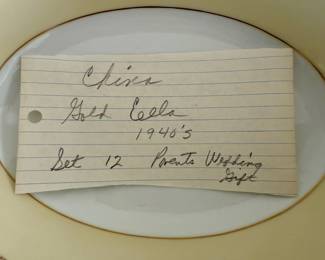 China
Gold Eella
1940's
Set 12 Parents Wedding
Gift